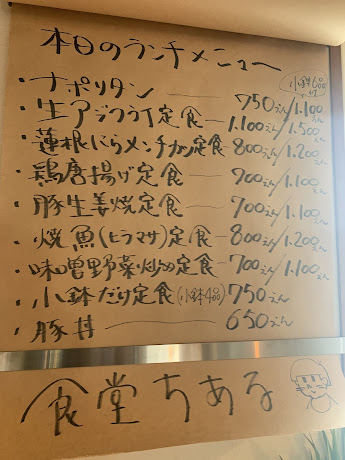 本日のランチメニュー
小鉢4品付
・ナポリタン 750えん/1,100えん
・生アジフライ定食 1,100えん/1,500えん
・蓮根にらメンチカツ定食 800えん/1,200えん
・鶏唐揚げ定食 700えん/1,100えん
・豚生姜焼定食 700えん/1,100えん
・焼魚(ヒラマサ)定食 800えん/1,200えん
・味噌野菜炒め定食 700えん/1,100えん
・小鉢だけ定食(小鉢4品) 750えん
・豚丼 650えん
食堂ちある